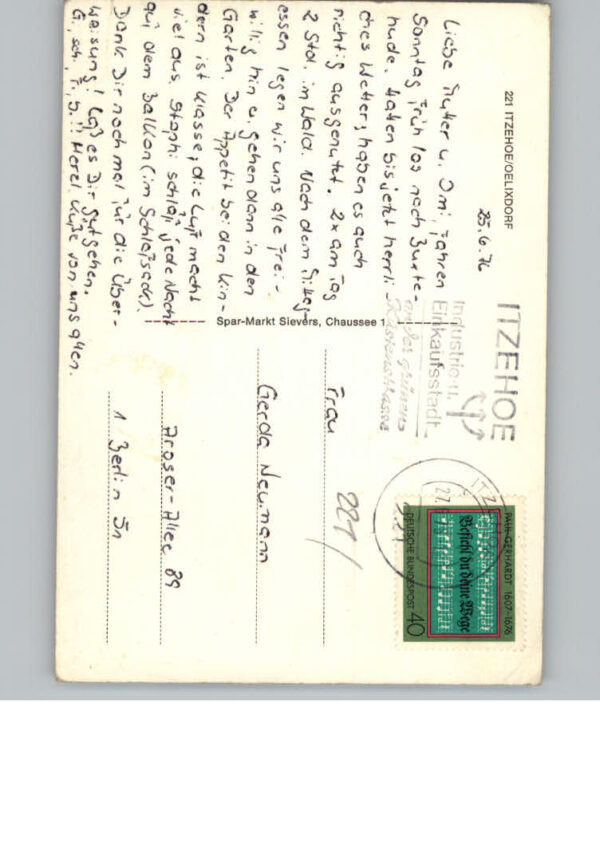 221 ITZEHOE/OELIXDORF
25.6.76
Liebe Mutter u. Omi, fahren
Sonntag früh los nach Buxte-
hude. Hatten bis jetzt herrli-
ches Wetter, haben es auch
richtig ausgenutzt. 2x am Tag
2 Std. im Wald. Nach dem Mittag-
essen legen wir uns alle frei-
willig hin u. gehen dann in den
Garten. Der Appetit bei den Kin-
dern ist Klasse, die Luft macht
viel aus. Stephi schläft jede Nacht
auf dem Balkon (im Schlafsack).
Dank Dir noch mal für die Über-
weisung! Laß es Dir gut gehen.
Herzl. Küße von uns allen.
Spar-Markt Sievers, Chaussee 1
ITZEHOE
Industrie u.
Einkaufsstadt
an der grünen
Küstenstrasse
221
PAUL GERHARDT 1607-1676
Befiehl du deine Wege
DEUTSCHE BUNDESPOST 40
221/
Frau
Gerda Neumann
Aroser-Allee 89
1 Berlin 51